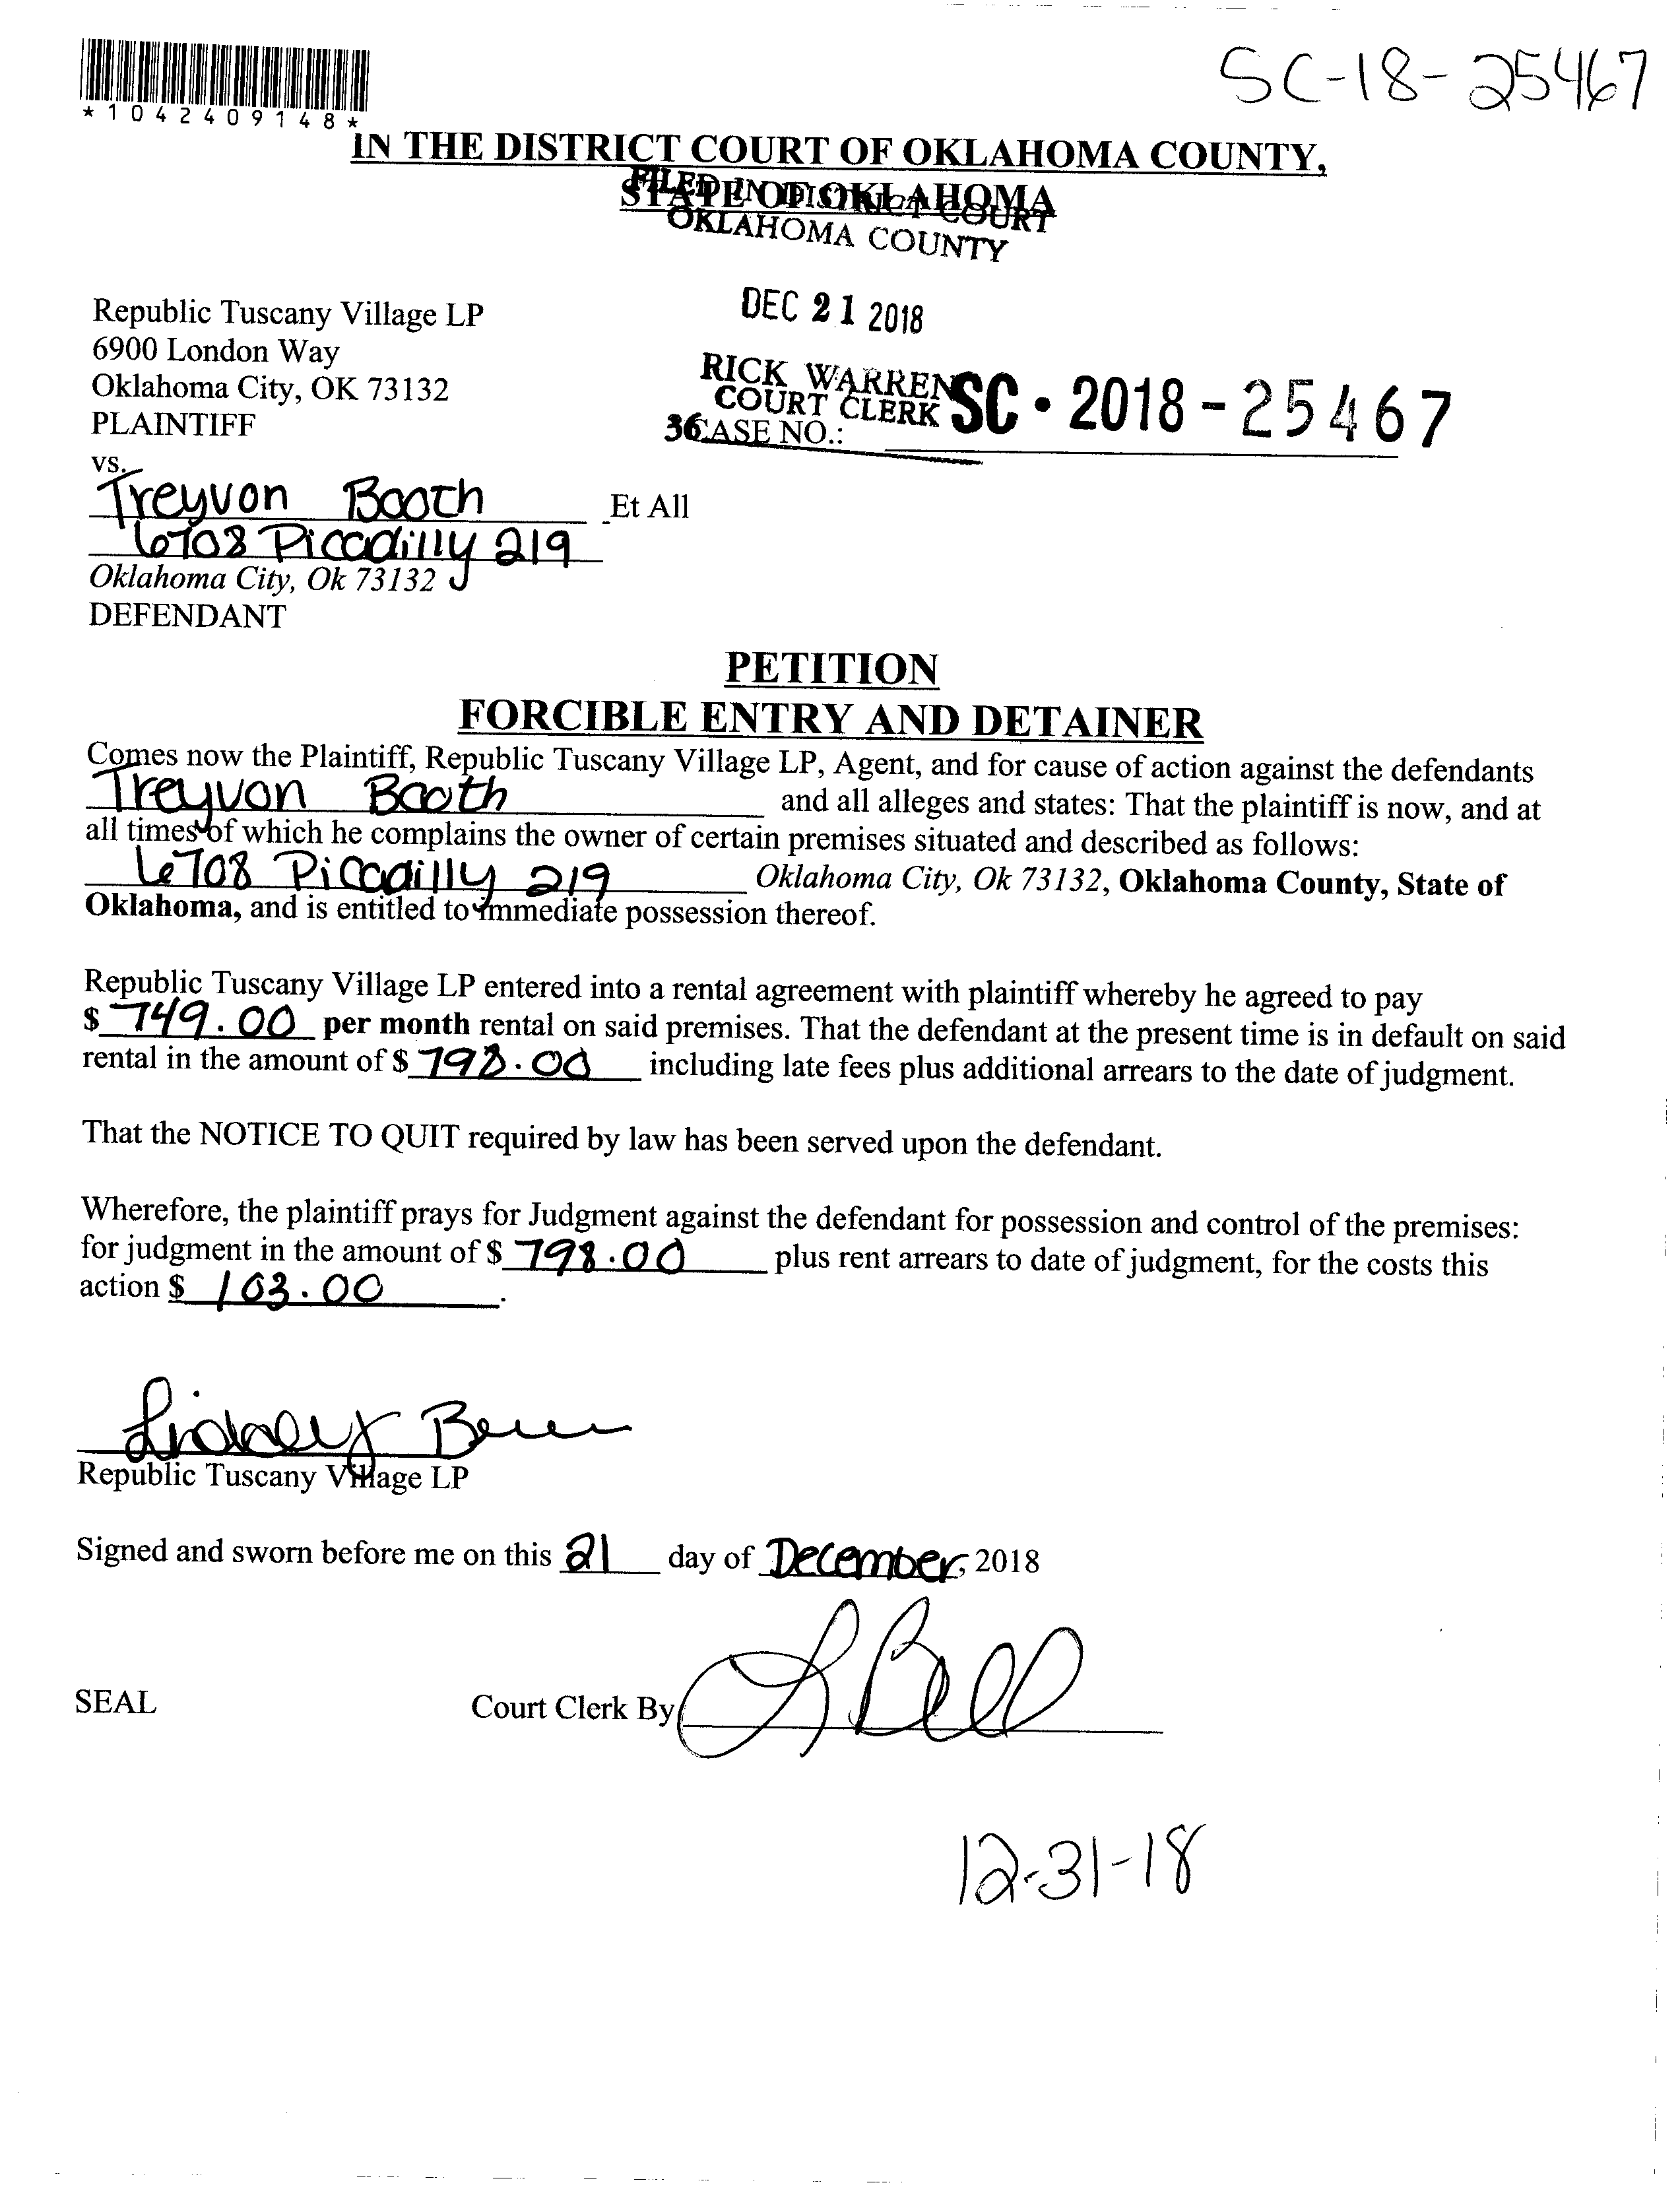 SC-18-25467
*1042409148*
IN THE DISTRICT COURT OF OKLAHOMA COUNTY,
STATE OF OKLAHOMA
FILED IN DISTRICT COURT
OKLAHOMA COUNTY
Republic Tuscany Village LP
DEC 21 2018
6900 London Way
Oklahoma City, OK 73132
RICK WARREN
COURT CLERK
PLAINTIFF
36 CASE NO.: SC - 2018 - 25467
vs.
Treyvon Booth Et All
6708 Picadilly 219
Oklahoma City, Ok 73132
DEFENDANT
PETITION
FORCIBLE ENTRY AND DETAINER
Comes now the Plaintiff, Republic Tuscany Village LP, Agent, and for cause of action against the defendants
Treyvon Booth and all alleges and states: That the plaintiff is now, and at
all times of which he complains the owner of certain premises situated and described as follows:
6708 Picadilly 219 Oklahoma City, Ok 73132, Oklahoma County, State of
Oklahoma, and is entitled to immediate possession thereof.
Republic Tuscany Village LP entered into a rental agreement with plaintiff whereby he agreed to pay
$ 749.00 per month rental on said premises. That the defendant at the present time is in default on said
rental in the amount of $ 798.00 including late fees plus additional arrears to the date of judgment.
That the NOTICE TO QUIT required by law has been served upon the defendant.
Wherefore, the plaintiff prays for Judgment against the defendant for possession and control of the premises:
for judgment in the amount of $ 798.00 plus rent arrears to date of judgment, for the costs this
action $ 103.00.
Lindsey
Republic Tuscany Village LP
Signed and sworn before me on this 21 day of December, 2018
SEAL Court Clerk By L Bell
12-31-18